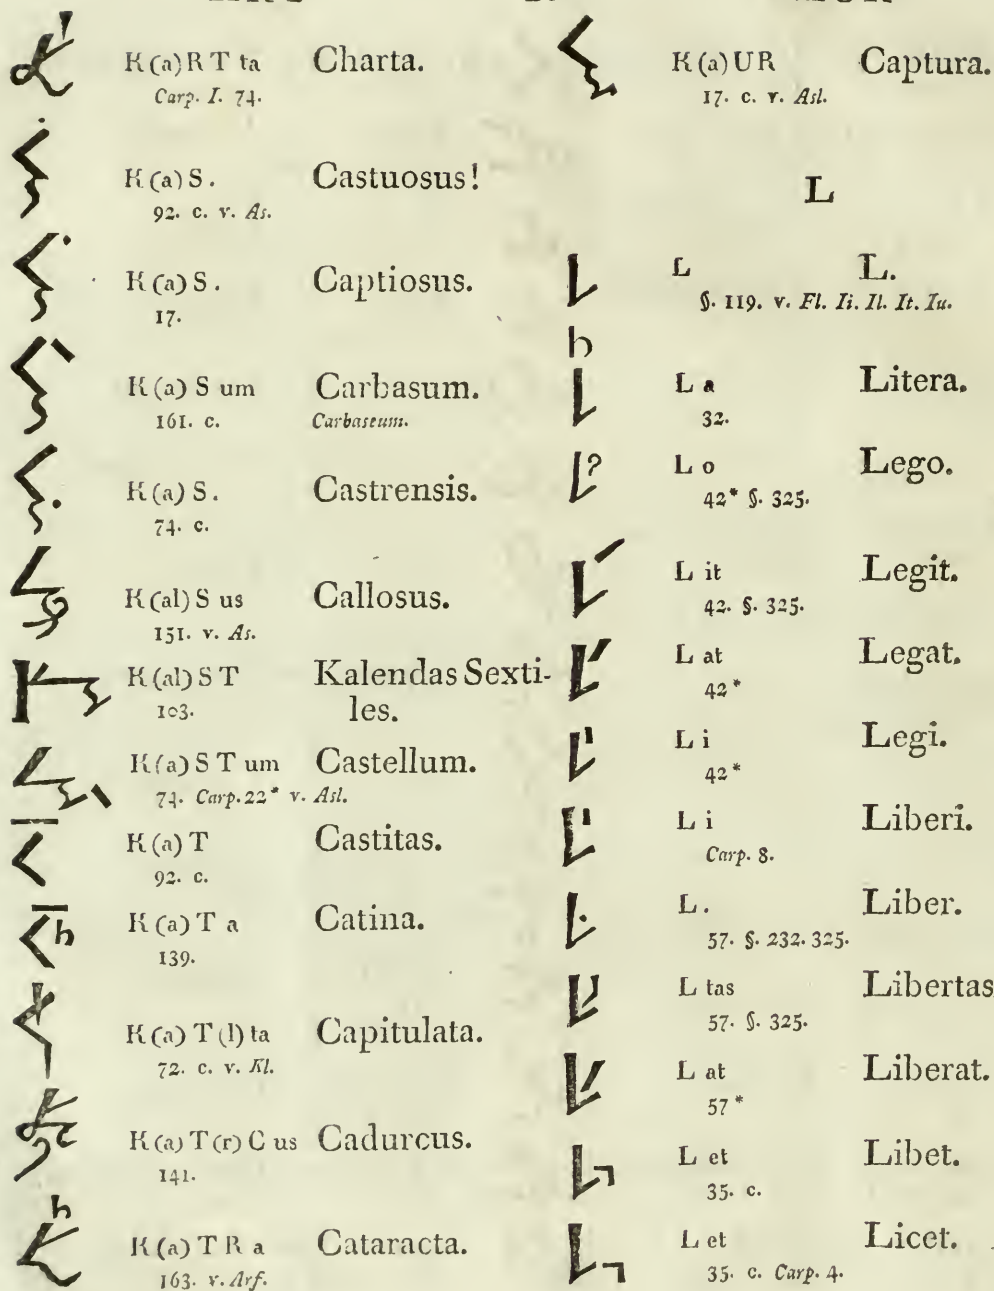 K(a)RT ta Charta.
Carp. I. 74.
K(a)S. Castuosus!
92. c. v. As.
K(a)S. Captiosus.
17.
K(a)S um Carbasum.
161. c. Carbaseum.
K(a)S. Castrensis.
74. c.
K(al)S us Callosus.
151. v. As.
K(al)ST Kalendas Sexti-
103. les.
K(a)ST um Castellum.
74. Carp. 22* v. Asl.
K(a)T Castitas.
92. c.
K(a)T a Catina.
139.
K(a)T(l)ta Capitulata.
72. c. v. Kl.
K(a)T(r)C us Cadurcus.
141.
K(a)TR a Cataracta.
163. v. Arf.
K(a)UR Captura.
17. c. v. Asl.
L
L L.
§. 119. v. Fl. Ii. Il. It. Iu.
L a Litera.
32.
L o Lego.
42* §. 325.
L it Legit.
42. §. 325.
L at Legat.
42*
L i Legi.
42*
L i Liberi.
Carp. 8.
L. Liber.
57. §. 232. 325.
L tas Libertas
57. §. 325.
L at Liberat.
57*
L et Libet.
35. c.
L et Licet.
35. c. Carp. 4.